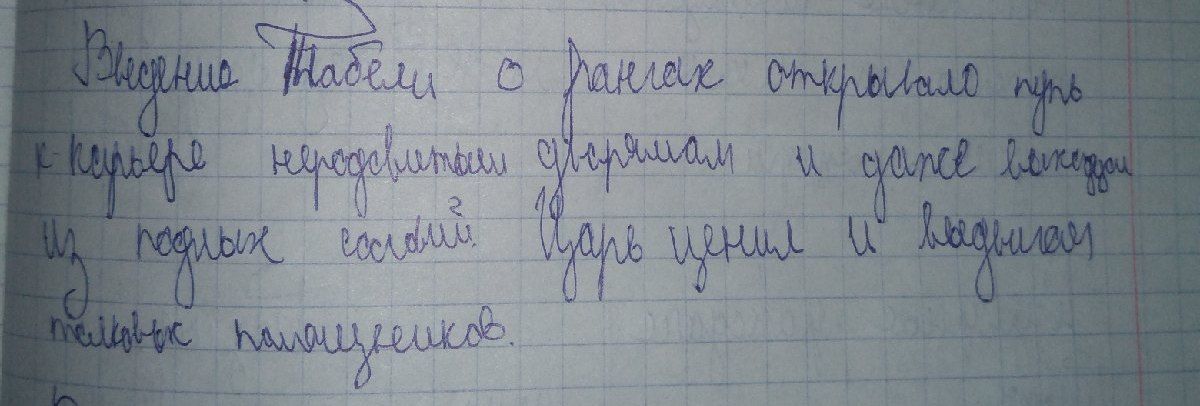 Введение Табели о рангах открывало путь
к карьере неродовитым дворянам и даже выходцам
из подлых сословий. Царь ценил и выдвигал
толковых помощников.